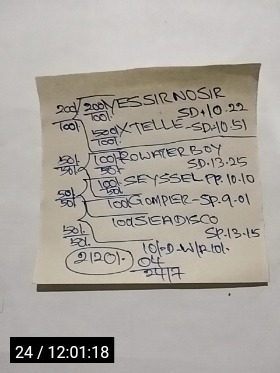 200/ 200/ YESSIRNOSIR
100/ 100/ SD+10.22
500/ X-TELLE-SD-10.51
100/
50/ 100/ ROWATERBOY
50/ 50/ SD.13.25
100/ SEYSSEL FP.10.10
50/ 50/
50/ 100/ GOMPIER-SP.9.01
100/ SEADISCO
50/ SP.13.15
50/
10/-D-W/R 10/.
2120/. 04
24/7
24 / 12:01:18